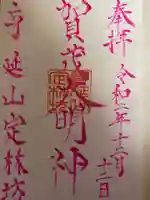 奉拝
令和二年十二月
十二日
賀茂大明神
延山定林坊